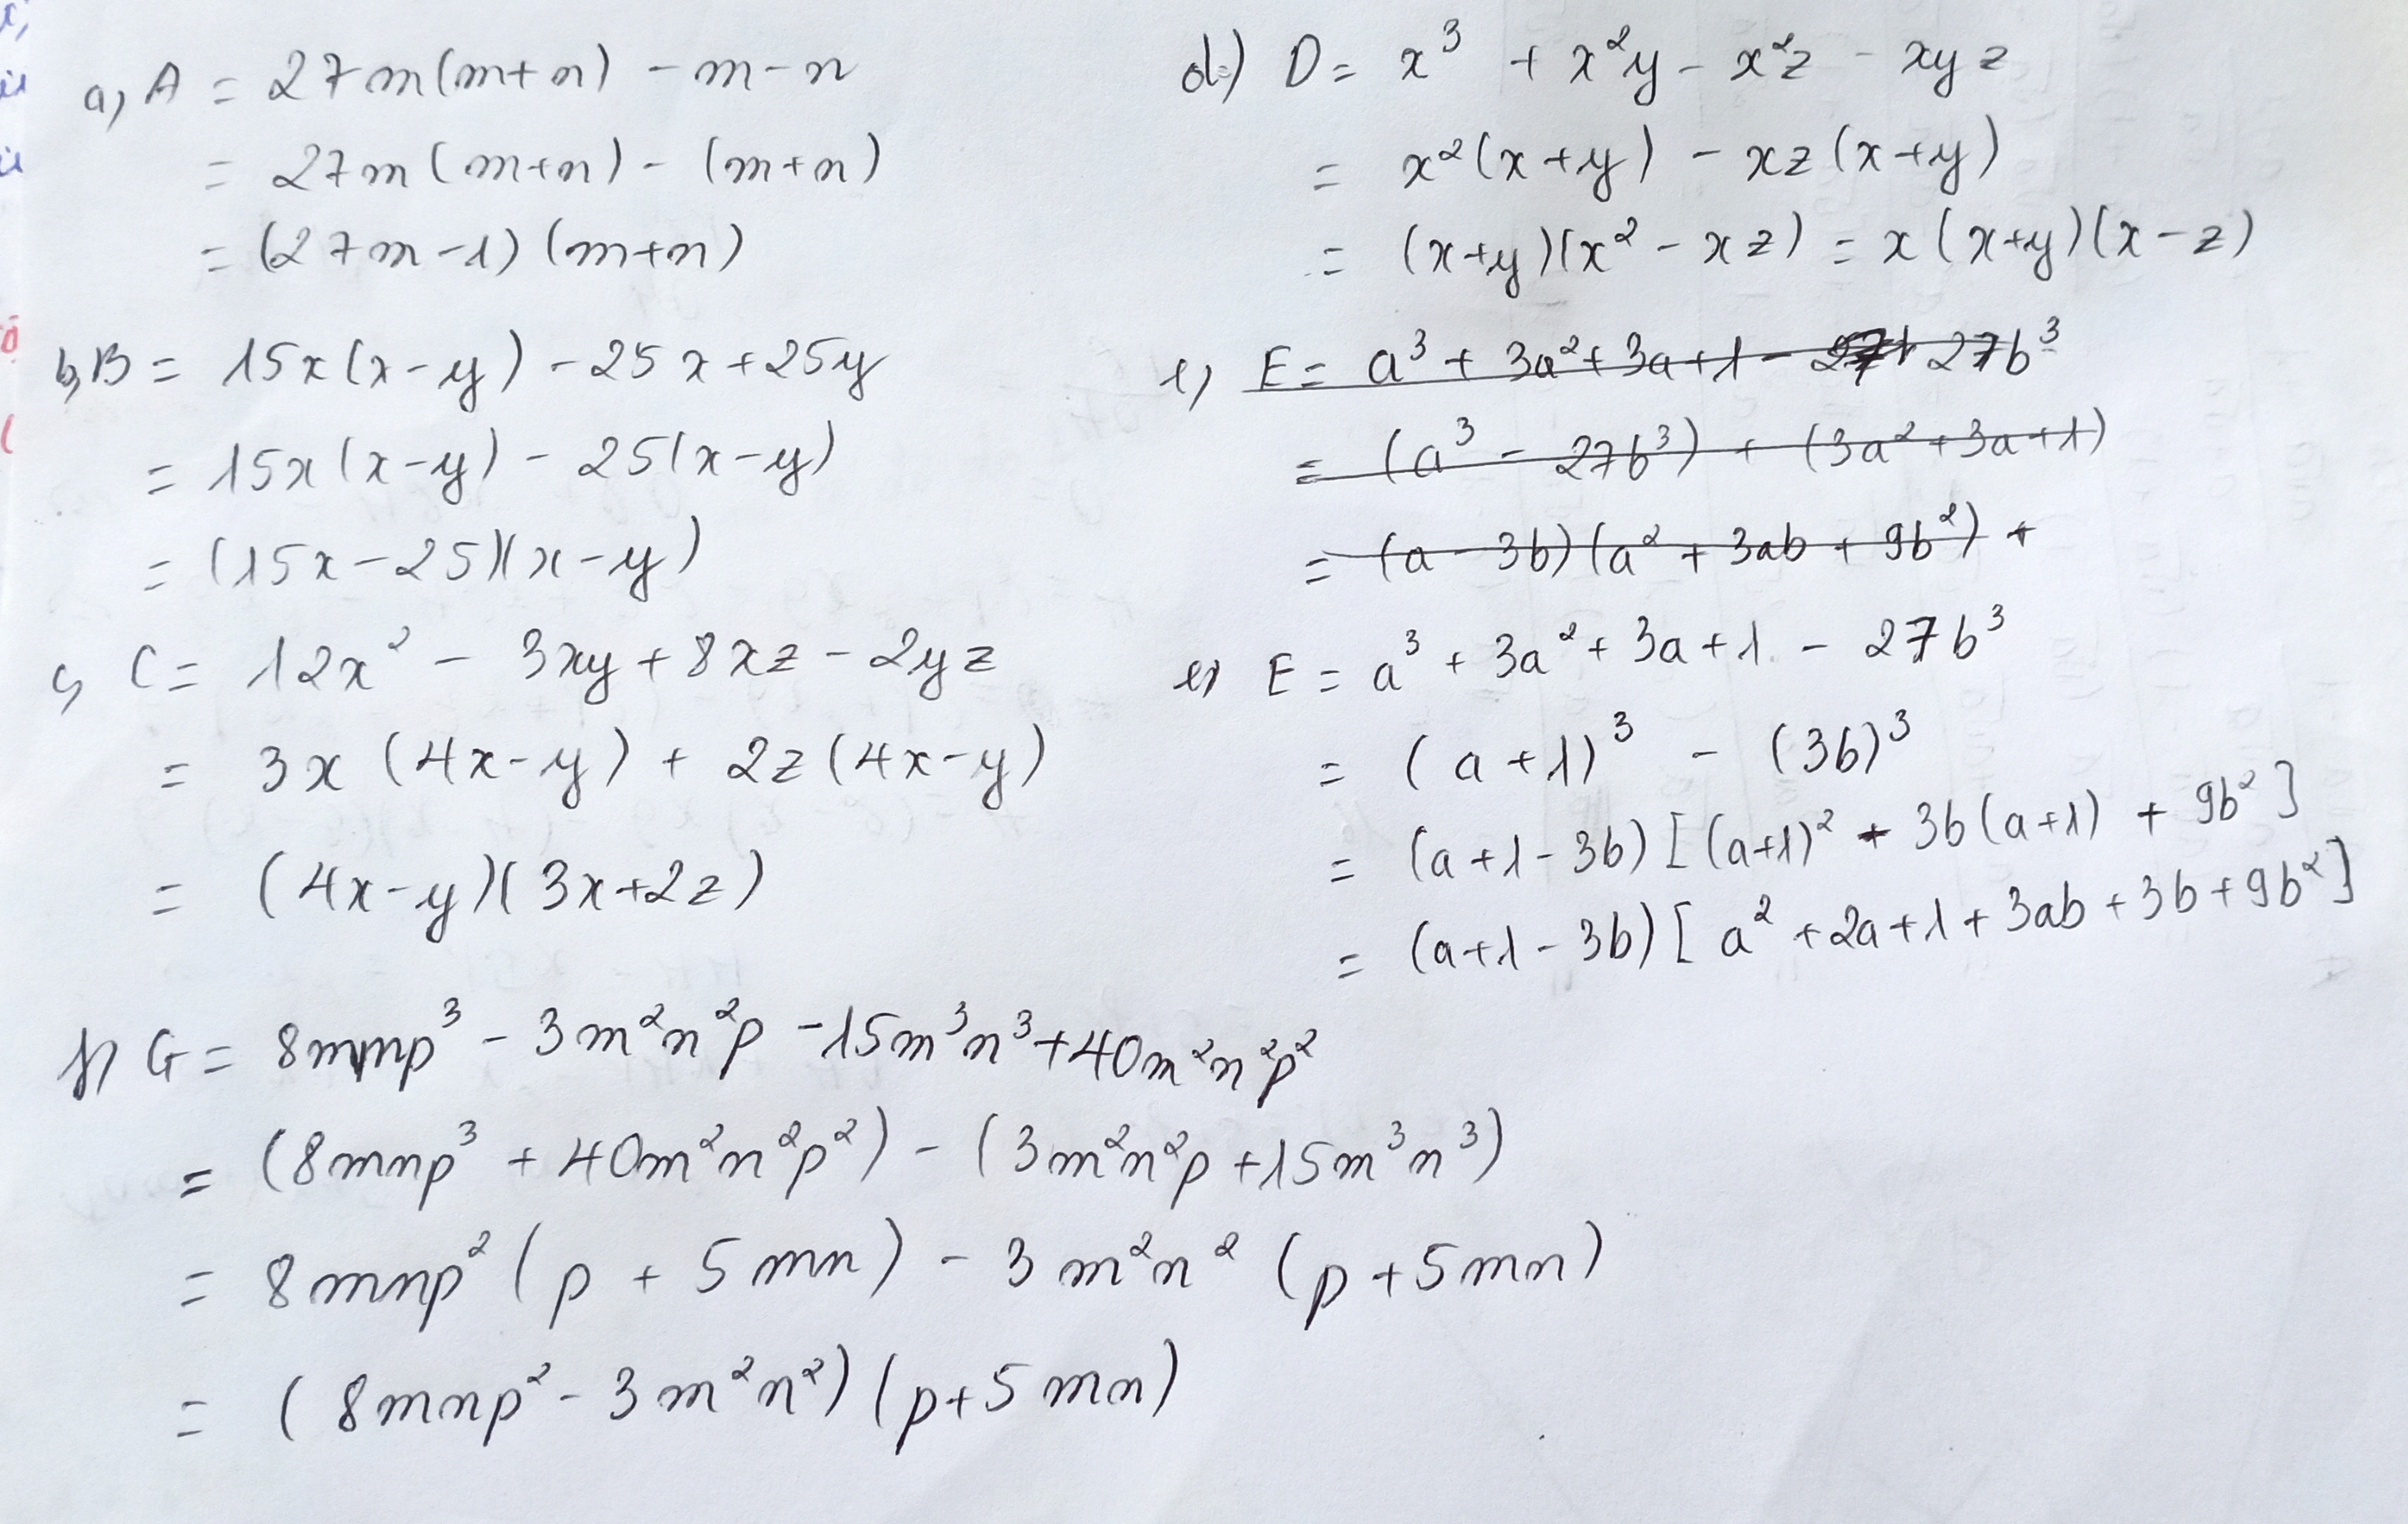 a, A = 27m(m+n) - m - n
= 27m(m+n) - (m+n)
= (27m-1)(m+n)
b, B = 15x(x-y) - 25x + 25y
= 15x(x-y) - 25(x-y)
= (15x-25)(x-y)
c, C = 12x² - 3xy + 8xz - 2yz
= 3x(4x-y) + 2z(4x-y)
= (4x-y)(3x+2z)
d) D = x³ + x²y - x²z - xyz
= x²(x+y) - xz(x+y)
= (x+y)(x² - xz) = x(x+y)(x-z)
e, E = a³ + 3a² + 3a + 1 - 27b³
= (a³ - 27b³) + (3a² + 3a + 1)
= (a - 3b)(a² + 3ab + 9b²) +
e, E = a³ + 3a² + 3a + 1 - 27b³
= (a+1)³ - (3b)³
= (a+1-3b)[(a+1)² + 3b(a+1) + 9b²]
= (a+1-3b)[a² + 2a + 1 + 3ab + 3b + 9b²]
f, G = 8mnp³ - 3m²n²p - 15m³n³ + 40m²n²p²
= (8mnp³ + 40m²n²p²) - (3m²n²p + 15m³n³)
= 8mnp²(p + 5mn) - 3m²n²(p + 5mn)
= (8mnp² - 3m²n²)(p + 5mn)